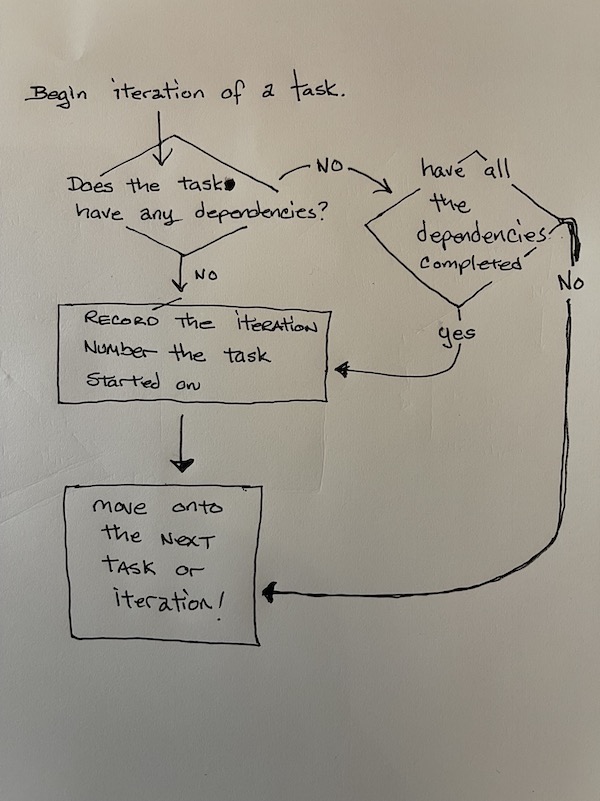 Begin iteration of a task.
Does the task
have any dependencies?
NO
have all
the
dependencies
completed
No
NO
yes
RECORD The iTERATION
Number the task
Started on
move onto
the NEXT
TASK or
iteration!